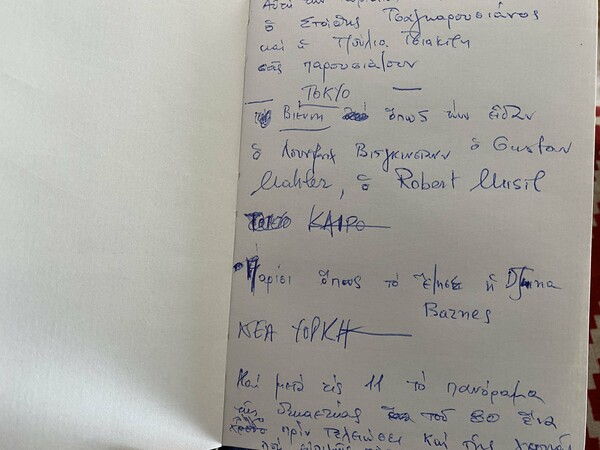 Αὐτὴ τὴν
ὁ Στάθης Τσαγκαρουσιάνος
καὶ ἡ Τζούλια Τσιακίρη
σᾶς παρουσιάζουν
ΤΟΚΥΟ
Βιέννη ὅπως τὴν εἶδαν
ὁ Λούντβιχ Βιτγκενστάιν ὁ Gustav
Mahler, ὁ Robert Musil
ΚΑΙΡΟ
Παρίσι ὅπως τὸ ἔζησε ἡ Djuna
Barnes
ΝΕΑ ΥΟΡΚΗ
Καὶ μετὰ τὶς 11 τὸ πανόραμα
τῆς δεκαετίας τοῦ 80
πρὶν τελειώσει καὶ τῆς